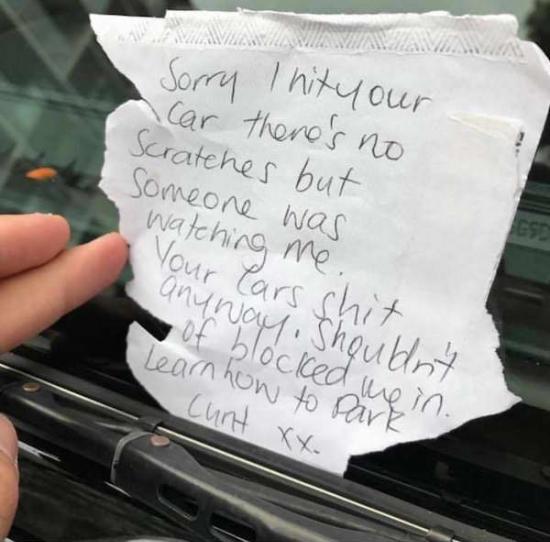 Sorry I hit your
Car there's no
Scratches but
Someone was
watching me.
Your Cars shit
anyway. Shouldn't
of blocked me in.
Learn how to Park
Cunt xx.